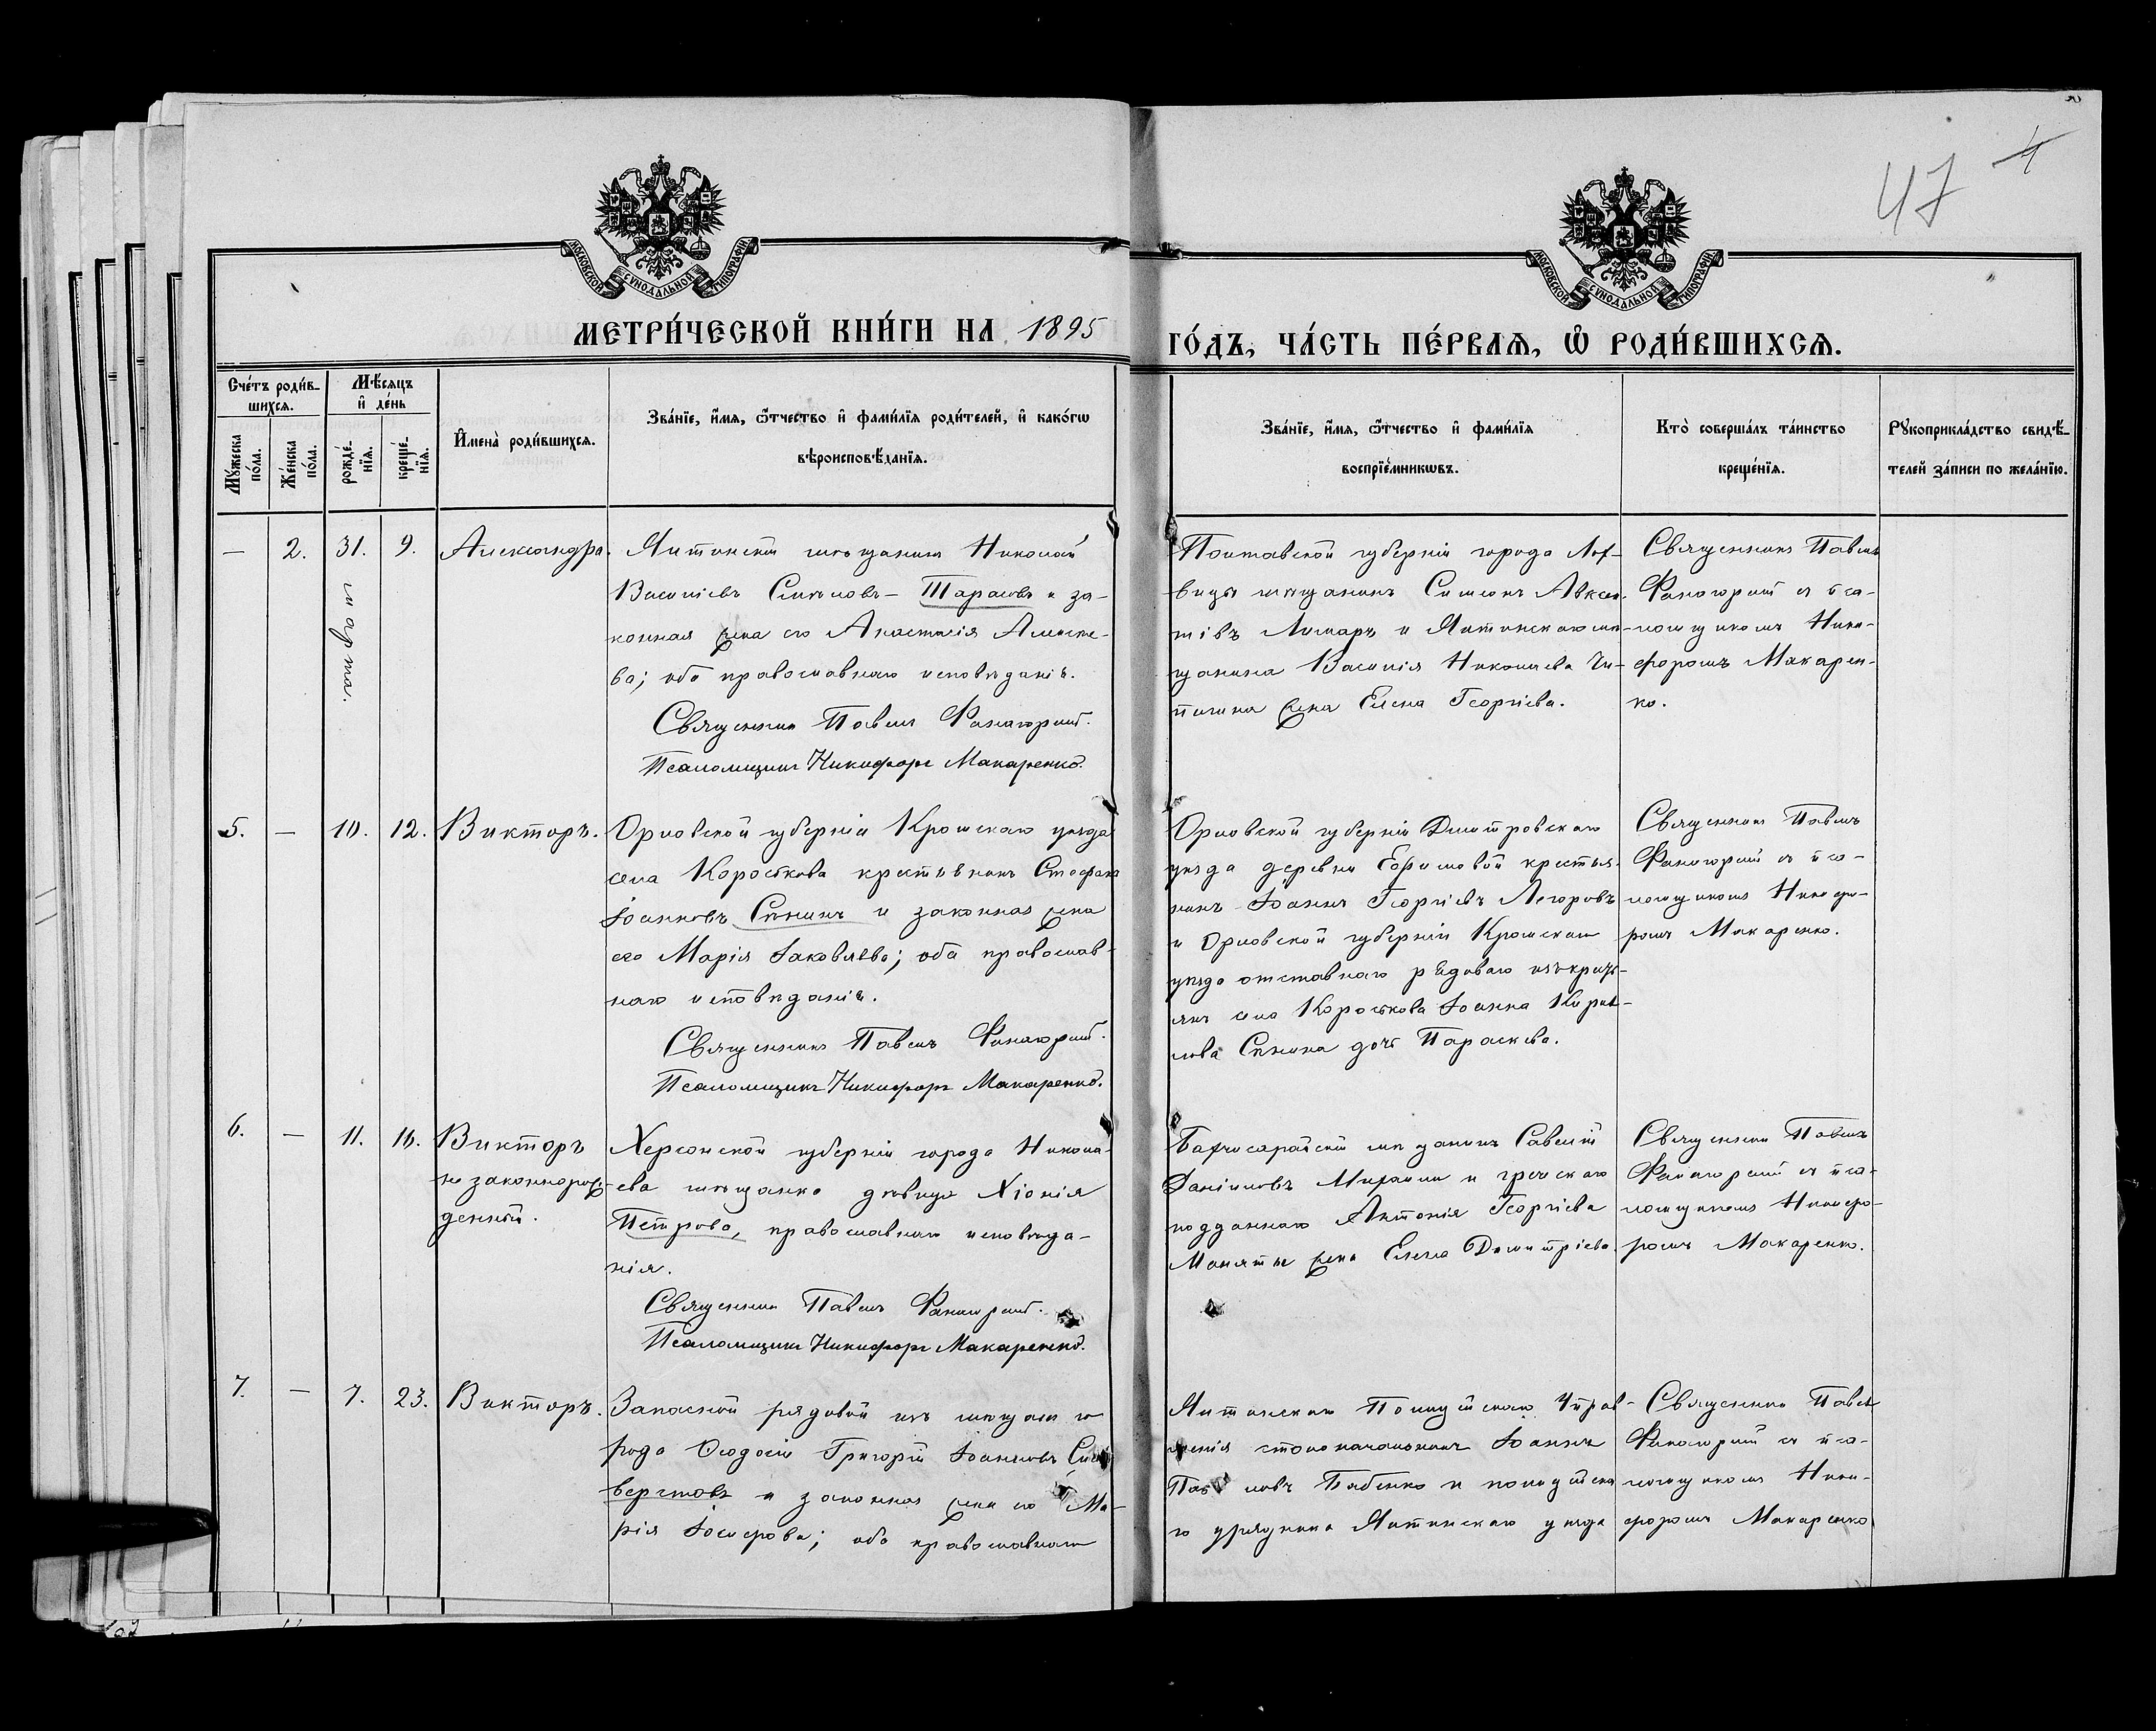 47
МОСКОВСКОЙ СУНОДАЛЬНОЙ ТИПОГРАФІИ
МОСКОВСКОЙ СУНОДАЛЬНОЙ ТИПОГРАФІИ
МЕТРИ́ЧЕСКОЙ КНИ́ГИ НА 1895 ГО́ДЪ, ЧА́СТЬ ПЕ́РВАѦ, Ѡ РОДИ́ВШИХСѦ.
Сче́тъ роди́в-
шихсѧ.
Мꙋ́жеска
по́ла.
Же́нска
по́ла.
Мѣ́сѧцъ
и҆ де́нь
рожде́-
нїѧ.
креще́-
нїѧ.
И҆мена̀ роди́вшихсѧ.
Зва́нїе, и҆́мѧ, ѻ҆́тчество и҆ фами́лїѧ роди́телей, и҆ како́гѡ
вѣроисповѣ́данїѧ.
Зва́нїе, и҆́мѧ, ѻ҆́тчество и҆ фами́лїѧ
воспрїе́мникѡвъ.
Кто̀ соверша́лъ та́инство
креще́нїѧ.
Рꙋкоприкла́дство свидѣ́-
телей за́писи по жела́нїю.
— 2. 31. 9.
марта.
Александра.
Ялтинскій мѣщанинъ Николай
Васильевъ Тарасовъ и за-
конная жена его Анастасія Алексѣе-
ва; оба православнаго исповѣданія.
Священникъ Павелъ
Псаломщикъ Никифоръ Макаренко.
Полтавской губерніи города Лох-
вицы мѣщанинъ Симеонъ Авксен-
тіевъ Лимарь и Ялтинскаго мѣ-
щанина Василія Николаева
жена Елена Георгіева.
Священникъ Павелъ
съ пса-
ломщикомъ Ники-
форомъ Макарен-
ко.
5. — 10. 12.
Викторъ.
Орловской губерніи Кромскаго уѣзда
села Короськова крестьянинъ Стефанъ
Іоанновъ Сѣнинъ и законная жена
его Марія Іаковлева; оба православ-
наго исповѣданія.
Священникъ Павелъ
Псаломщикъ Никифоръ Макаренко.
Орловской губерніи Дмитровскаго
уѣзда деревни Ефимовой крестья-
нинъ Іоаннъ Георгіевъ
и Орловской губерніи Кромскаго
уѣзда отставнаго рядоваго изъ крестьянъ
села Короськова Іоанна Кирил-
лова Сѣнина дочь Параскева.
Священникъ Павелъ
съ пса-
ломщикомъ Никифо-
ромъ Макаренко.
6. — 11. 16.
Викторъ
незаконнорож-
денный.
Херсонской губерніи города Никола-
ева мѣщанка дѣвица Хіонія
Петрова, православнаго исповѣда-
нія.
Священникъ Павелъ
Псаломщикъ Никифоръ Макаренко.
Бахчисарайскій мѣщанинъ Савелій
Даніиловъ и греческаго
подданнаго Антонія Георгіева
жена Елена Димитріева.
Священникъ Павелъ
съ пса-
ломщикомъ Никифо-
ромъ Макаренко.
7. — 7. 23.
Викторъ.
Запасной рядовой изъ мѣщанъ го-
рода Ѳеодосіи Григорій Іоанновъ
и законная жена его Ма-
рія Іосифова; оба православнаго
Ялтинскаго Полицейскаго Управ-
ленія столоначальникъ Іоаннъ
Павловъ Бабенко и полицейска-
го урядника Ялтинскаго уѣзда
Священникъ Павелъ
съ пса-
ломщикомъ Ники-
форомъ Макаренко